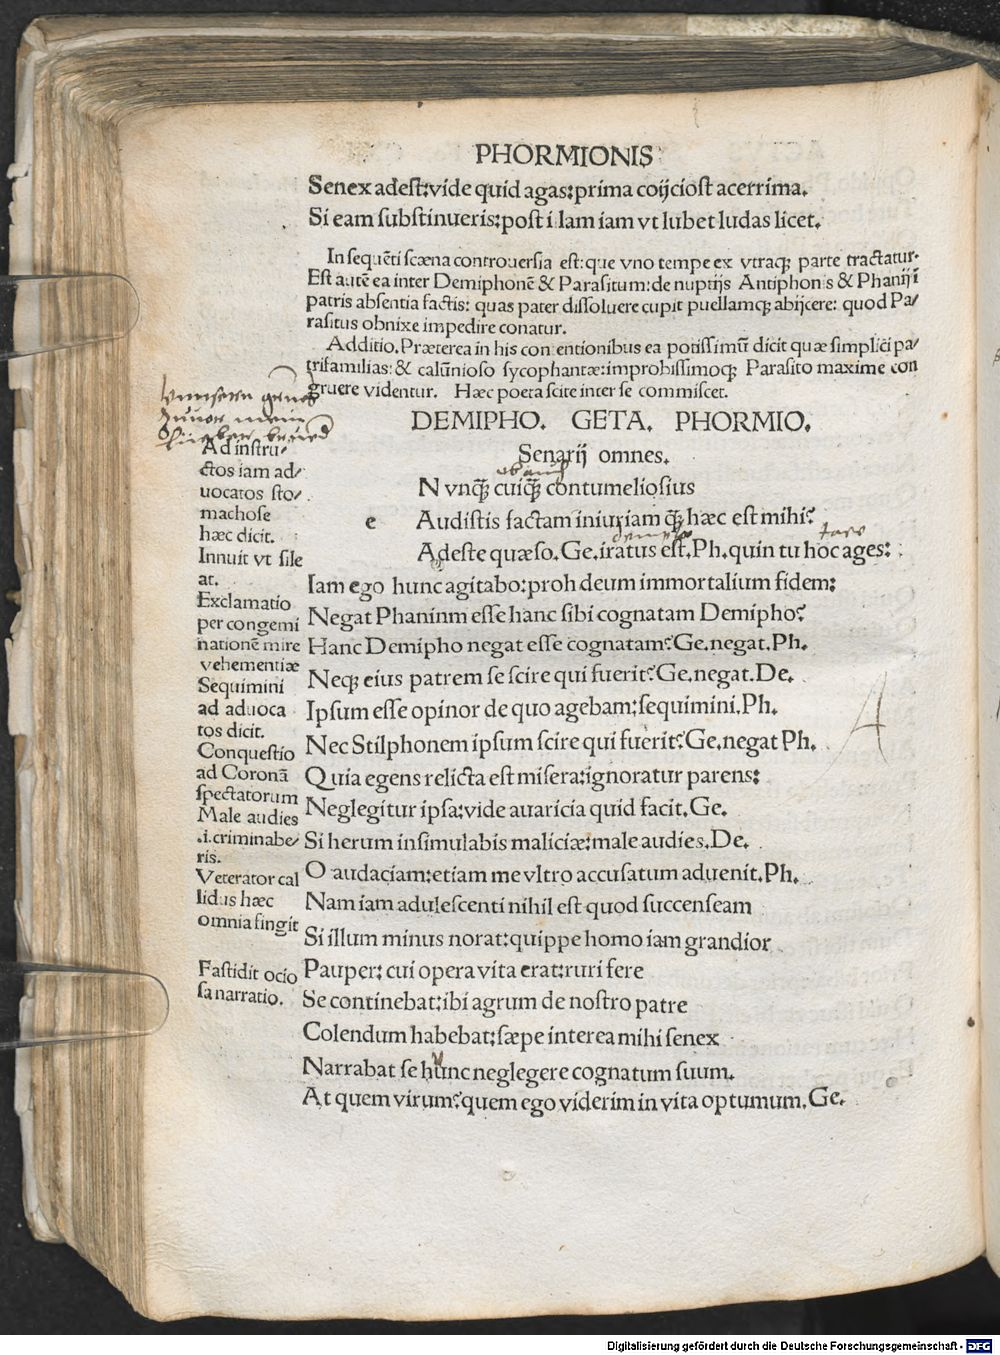 PHORMIONIS
Senex adest:vide quid agas:prima coijciost acerrima.
Si eam substinueris:post i lam iam vt lubet ludas licet.
In sequēti scæna controuersia est: que vno tempe ex vtraqȝ parte tractatur.
Est autē ea inter Demiphonē & Parasitum: de nuptijs Antiphonis & Phanij
patris absentia factis: quas pater dissoluere cupit puellamqȝ abijcere: quod Pa/
rasitus obnixe impedire conatur.
Additio. Præterea in his con entionibus ea potissimū dicit quæ simplici pa/
trifamilias: & calūnioso sycophantæ: improbissimoqȝ Parasito maxime con
gruere videntur. Hæc poeta scite inter se commiscet.
DEMIPHO. GETA. PHORMIO.
Senarij omnes.
N vnqȝ cuiqȝ contumeliosius
e Audistis factam iniuriam qȝ hæc est mihi?
Adeste quæso. Ge. iratus est. Ph. quin tu hoc ages:
Iam ego hunc agitabo: proh deum immortalium fidem:
Negat Phaninm esse hanc sibi cognatam Demipho?
Hanc Demipho negat esse cognatam? Ge. negat. Ph.
Neqȝ eius patrem se scire qui fuerit? Ge. negat. De.
Ipsum esse opinor de quo agebam: sequimini. Ph.
Nec Stilphonem ipsum scire qui fuerit? Ge. negat Ph.
Quia egens relicta est misera: ignoratur parens:
Neglegitur ipsa: vide auaricia quid facit. Ge.
Si herum insimulabis maliciæ: male audies. De.
O audaciam: etiam me vltro accusatum aduenit. Ph.
Nam iam adulescenti nihil est quod succenseam
Si illum minus norat: quippe homo iam grandior
Pauper: cui opera vita erat: ruri fere
Se continebat: ibi agrum de nostro patre
Colendum habebat: sæpe interea mihi senex
Narrabat se hunc neglegere cognatum suum.
At quem virum? quem ego viderim in vita optumum. Ge.
Ad instru/
ctos iam ad/
uocatos sto/
machose
hæc dicit.
Innuit vt sile
at.
Exclamatio
per congemi
nationē mire
vehementiæ
Sequimini
ad aduoca
tos dicit.
Conquestio
ad Coronā
spectatorum
Male audies
.i. criminabe/
ris.
Veterator cal
lidus hæc
omnia fingit
Fastidit ocio
sa narratio.
A
Digitalisierung gefördert durch die Deutsche Forschungsgemeinschaft - DFG